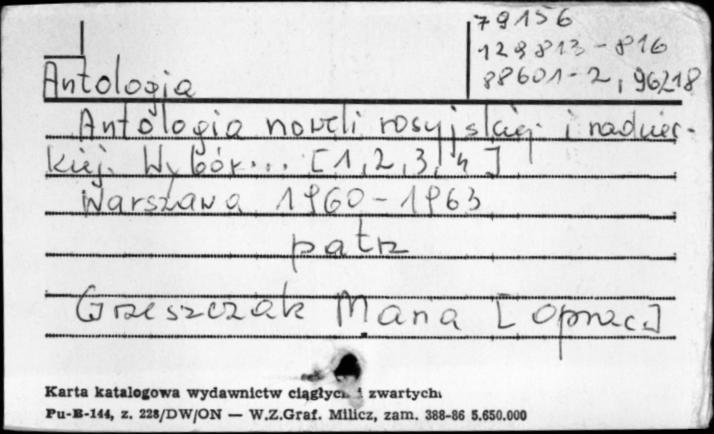 79156
129813-816
88601-2, 96218
Antologia
Antologia noweli rosyjskiej i radziec-
kiej. Wybór... [1,2,3,4]
Warszawa 1960-1963
patrz
Grzeszczak Maria [oprac.]
Karta katalogowa wydawnictw ciągłych i zwartych
Pu-B-144, z. 228/DW/ON — W.Z.Graf. Milicz, zam. 388-86 5.650.000